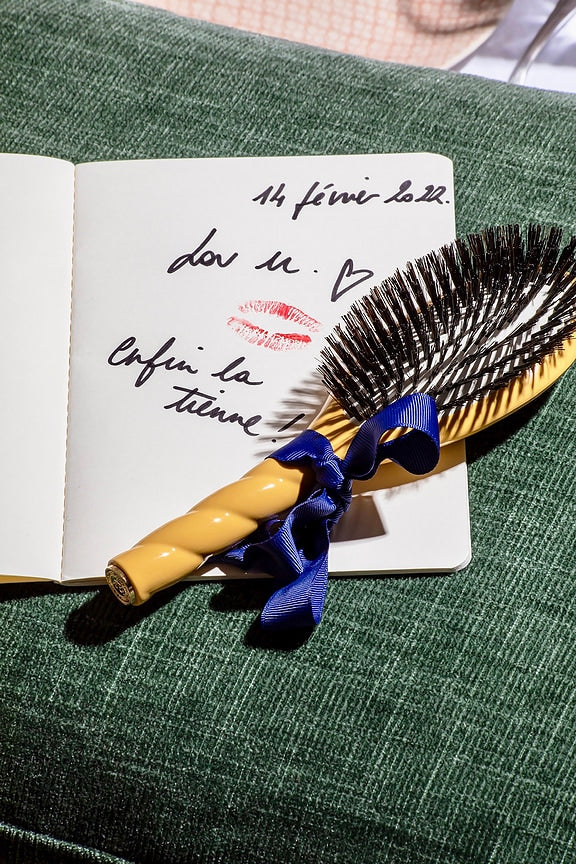 14 février 2022.
Lov u. ♡
Enfin la
tienne !